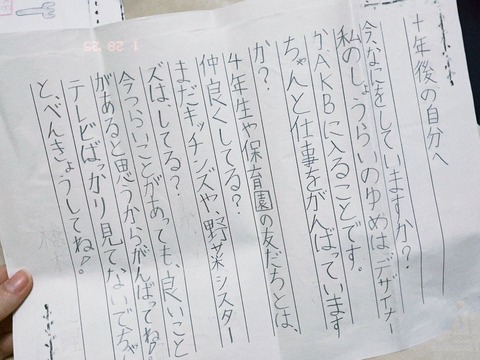 十年後の自分へ
今なにをしていますか？
私のしょうらいのゆめはデザイナー
かAKBに入ることです。
ちゃんと仕事をがんばっています
か？
4年生や保育園の友だちとは、
仲良くしてる？
まだキッチンズや、野菜シスター
ズはしてる？
今つらいことがあっても、良いこと
があると思うからがんばってね！
テレビばっかり見てないでちゃん
と、べんきょうしてね！
1 28 25